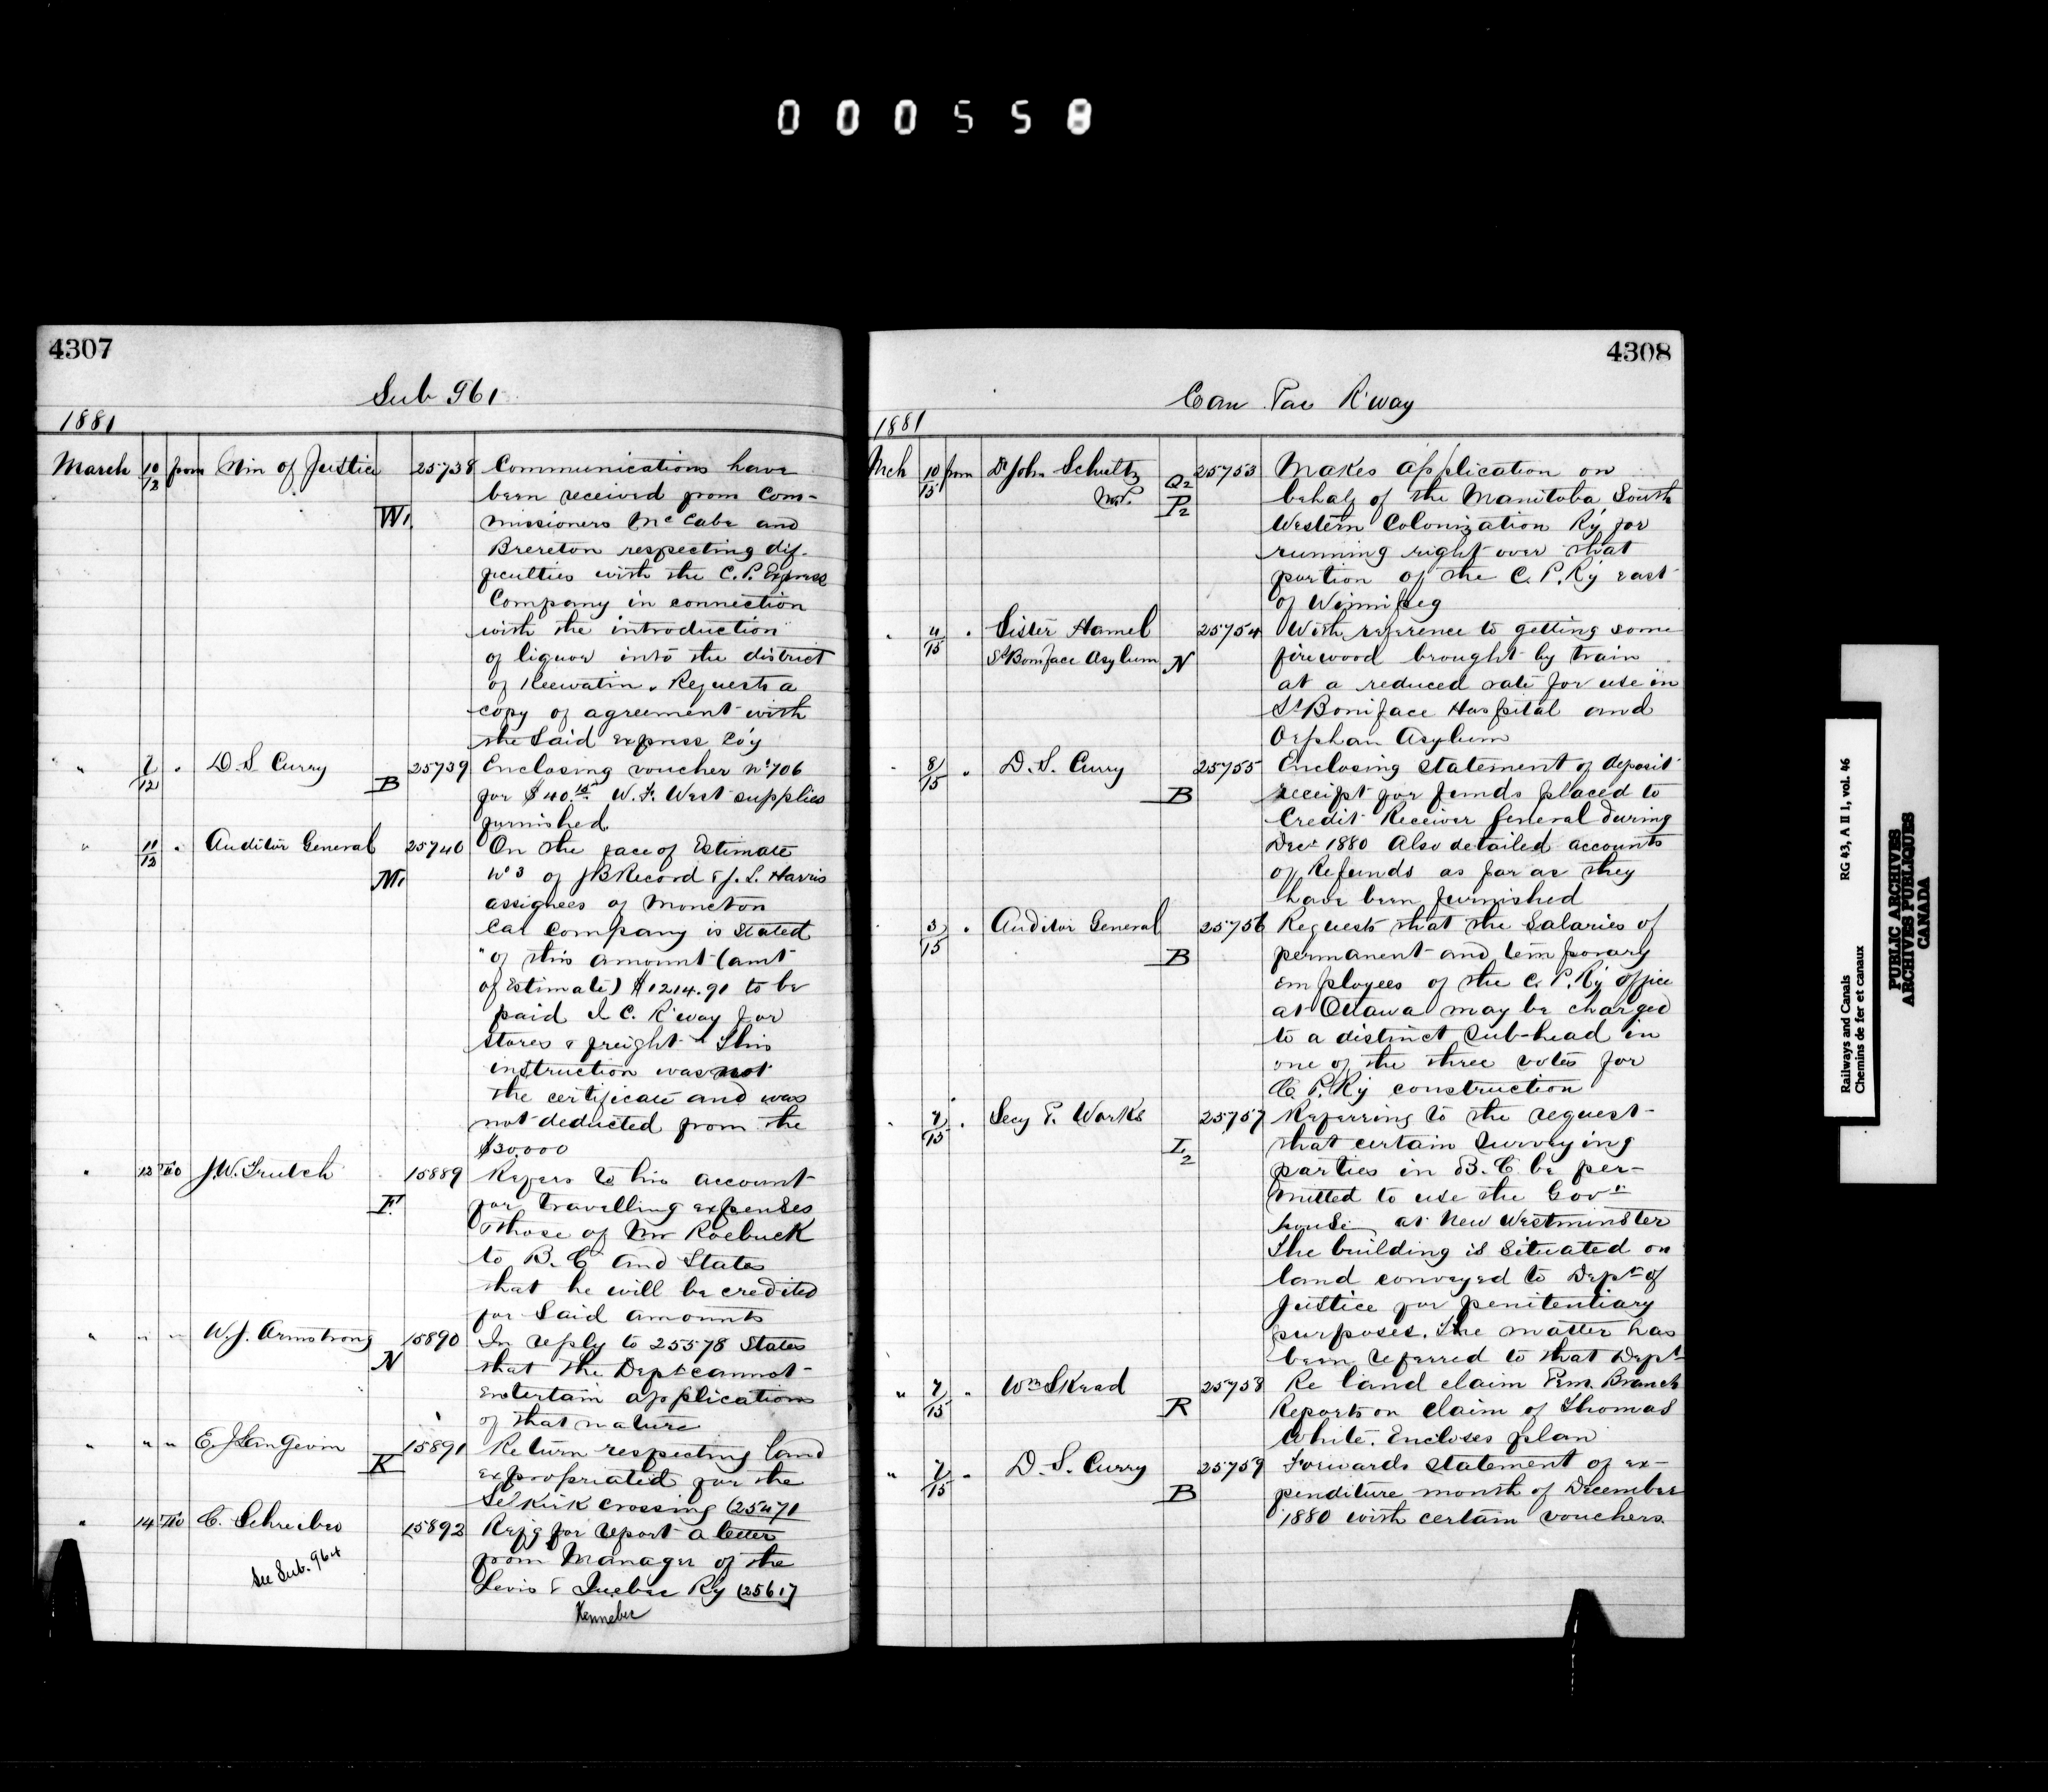 000558
4307
Sub 961
1881
March 10/12 from Min of Justice W1 25738 Communications have
been received from Com-
missioners McCabe and
Brereton respecting dif-
ficulties with the C.P. Express
Company in connection
with the introduction
of liquor into the district
of Keewatin. Requests a
copy of agreement with
the said express Co'y
" 7/12 " D.S. Curry B 25739 Enclosing voucher No 706
for $40. W.F. West supplies
furnished
" 11/12 " Auditor General M1 25740 On the face of Estimate
No 3 of J B Record & J. L. Harris
assignees of Moncton
Car Company is stated
"of this amount (amt
of Estimate) $1214.91 to be
paid I C. R'way for
stores & freight" This
instruction was not
the certificate and was
not deducted from the
$30.000
" 12 To J.W. Trutch F. 15889 Refers to his account
for travelling expenses
& those of Mr Roebuck
to B.C and States
that he will be credited
for said amounts
" " " W.J. Armstrong N 15890 In reply to 25578 States
that the Dept cannot
entertain applications
of that nature
" " " E.J Langevin K 15891 Return respecting land
expropriated for the
Selkirk crossing (25471
" 14 To C. Schreiber 15892 Refg for report a letter
from Manager of the
Levis & Quebec Ry (25617
Kennebec
See Sub. 964
4308
Can Pac R'way
1881
Mch 10/15 from Dr John Schultz Q2 25753 Makes application on
M.P. P2 behalf of the Manitoba South
Western Colonization Ry for
running right over that
portion of the C.P. Ry east
of Winnipeg
" 4/15 " Sister Hamel 25754 With reference to getting some
St Boniface Asylum N firewood brought by train
at a reduced rate for use in
St Boniface Hospital and
Orphan Asylum
" 8/15 " D.S. Curry B 25755 Enclosing statement of deposit
receipt for funds placed to
Credit Receiver General during
Decr 1880 Also detailed accounts
of Refunds as far as they
have been furnished
" 3/15 " Auditor General B 25756 Requests that the salaries of
permanent and temporary
employees of the C.P. Ry office
at Ottawa may be charged
to a distinct sub-head in
one of the three votes for
C P. Ry construction
" 7/15 " Secy P. Works I2 25757 Referring to the request
that certain surveying
parties in B.C be per-
mitted to use the Govt
house at New Westminster
The building is situated on
land conveyed to Dept of
Justice for penitentiary
purposes. The matter has
been referred to that Dept
" 7/15 " Wm Skead R 25758 Re land claim Pem. Branch
Reports on claim of Thomas
White. Encloses plan
" 7/15 " D.S. Curry B 25759 Forwards statement of ex-
penditure month of December
1880 with certain vouchers.
Railways and Canals RG 43, A II 1, vol. 46
Chemins de fer et canaux
PUBLIC ARCHIVES
ARCHIVES PUBLIQUES
CANADA